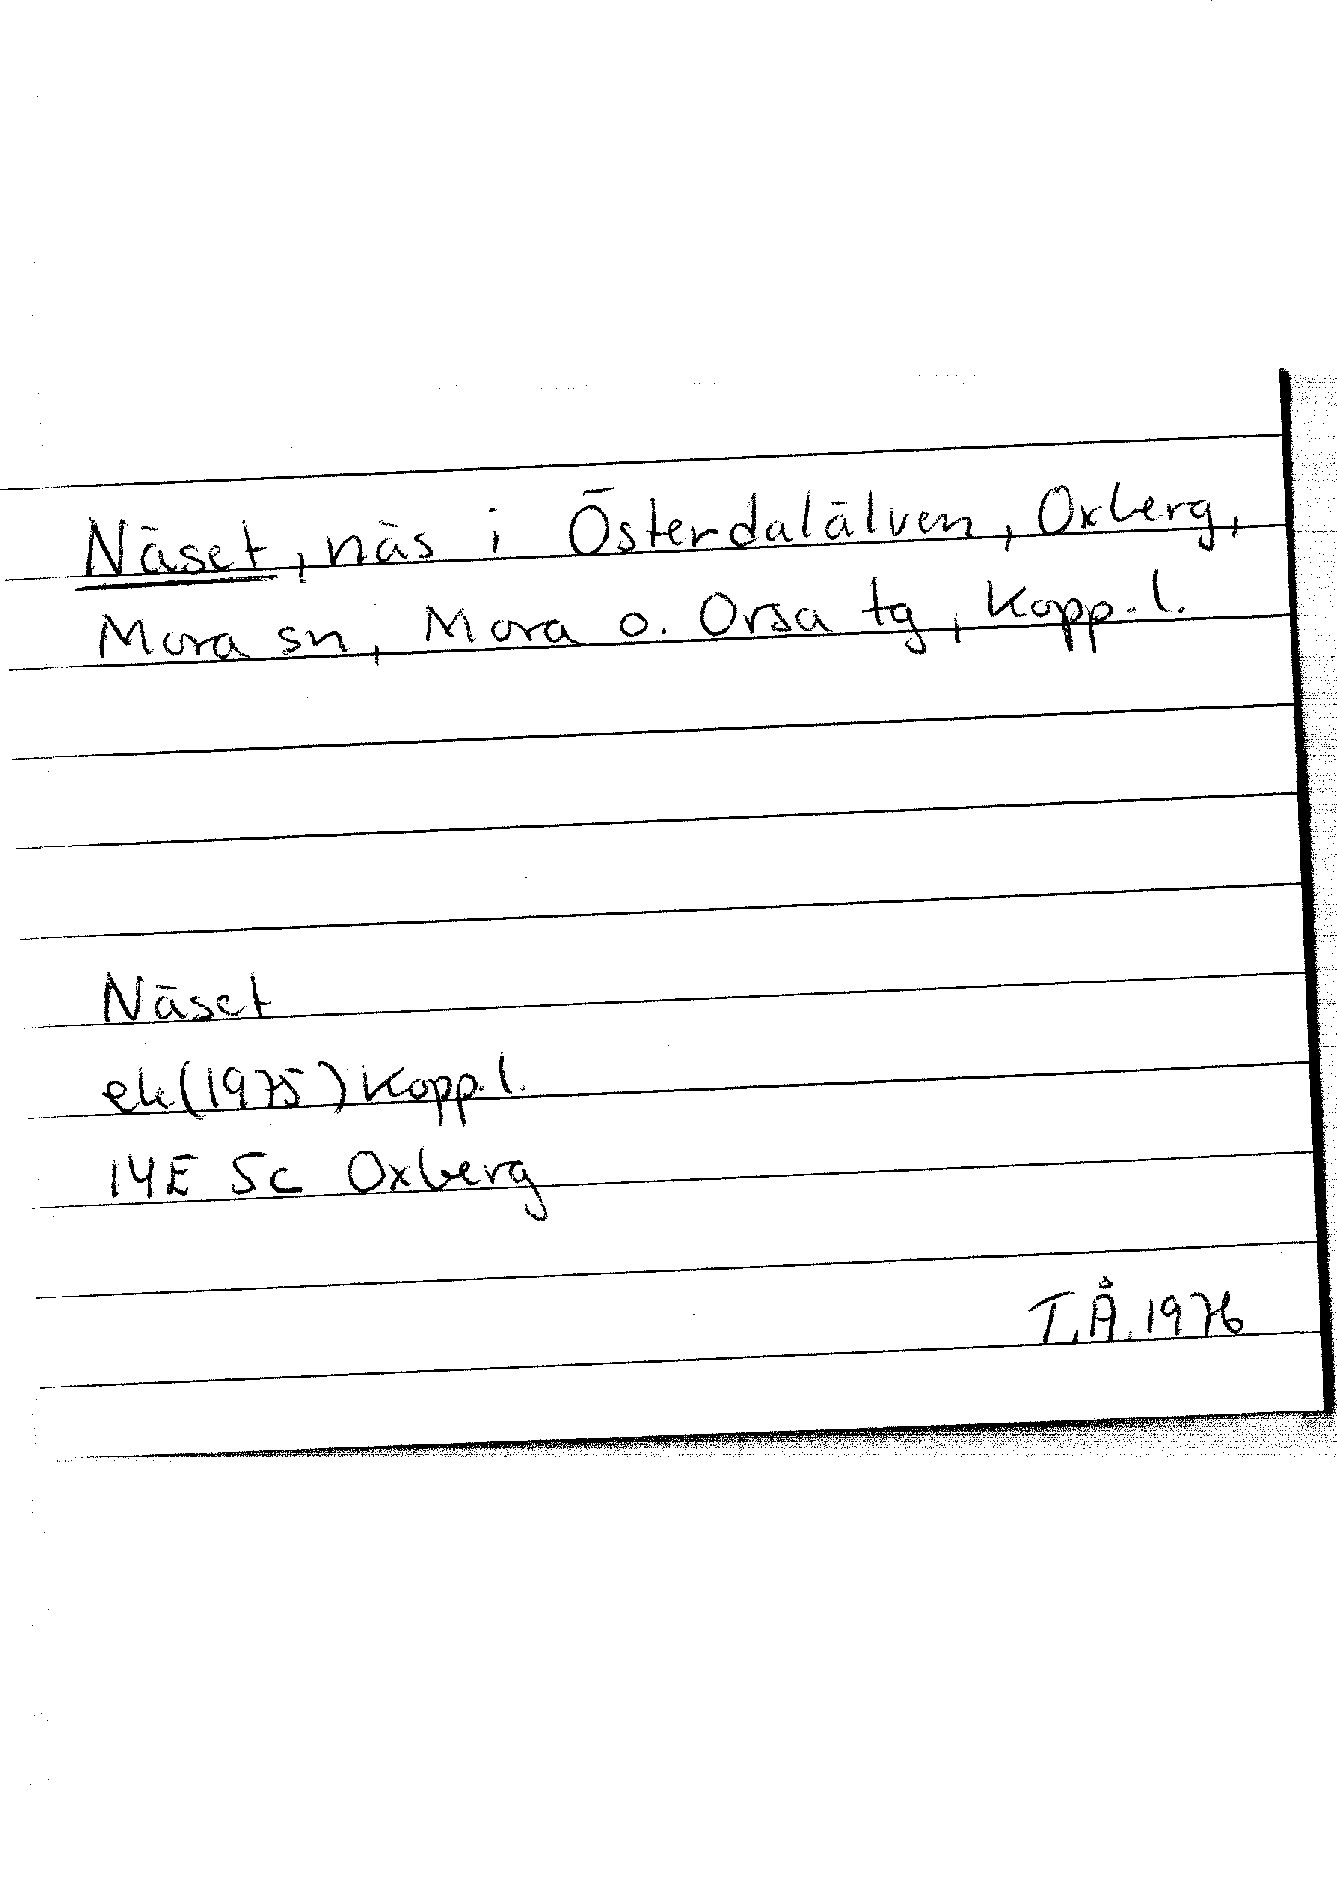 Näset, näs i Österdalälven, Oxberg,
Mora sn, Mora o. Orsa tg, Kopp. l.
Näset
ek (1975) Kopp. l.
14E 5c Oxberg
T.Å. 1976